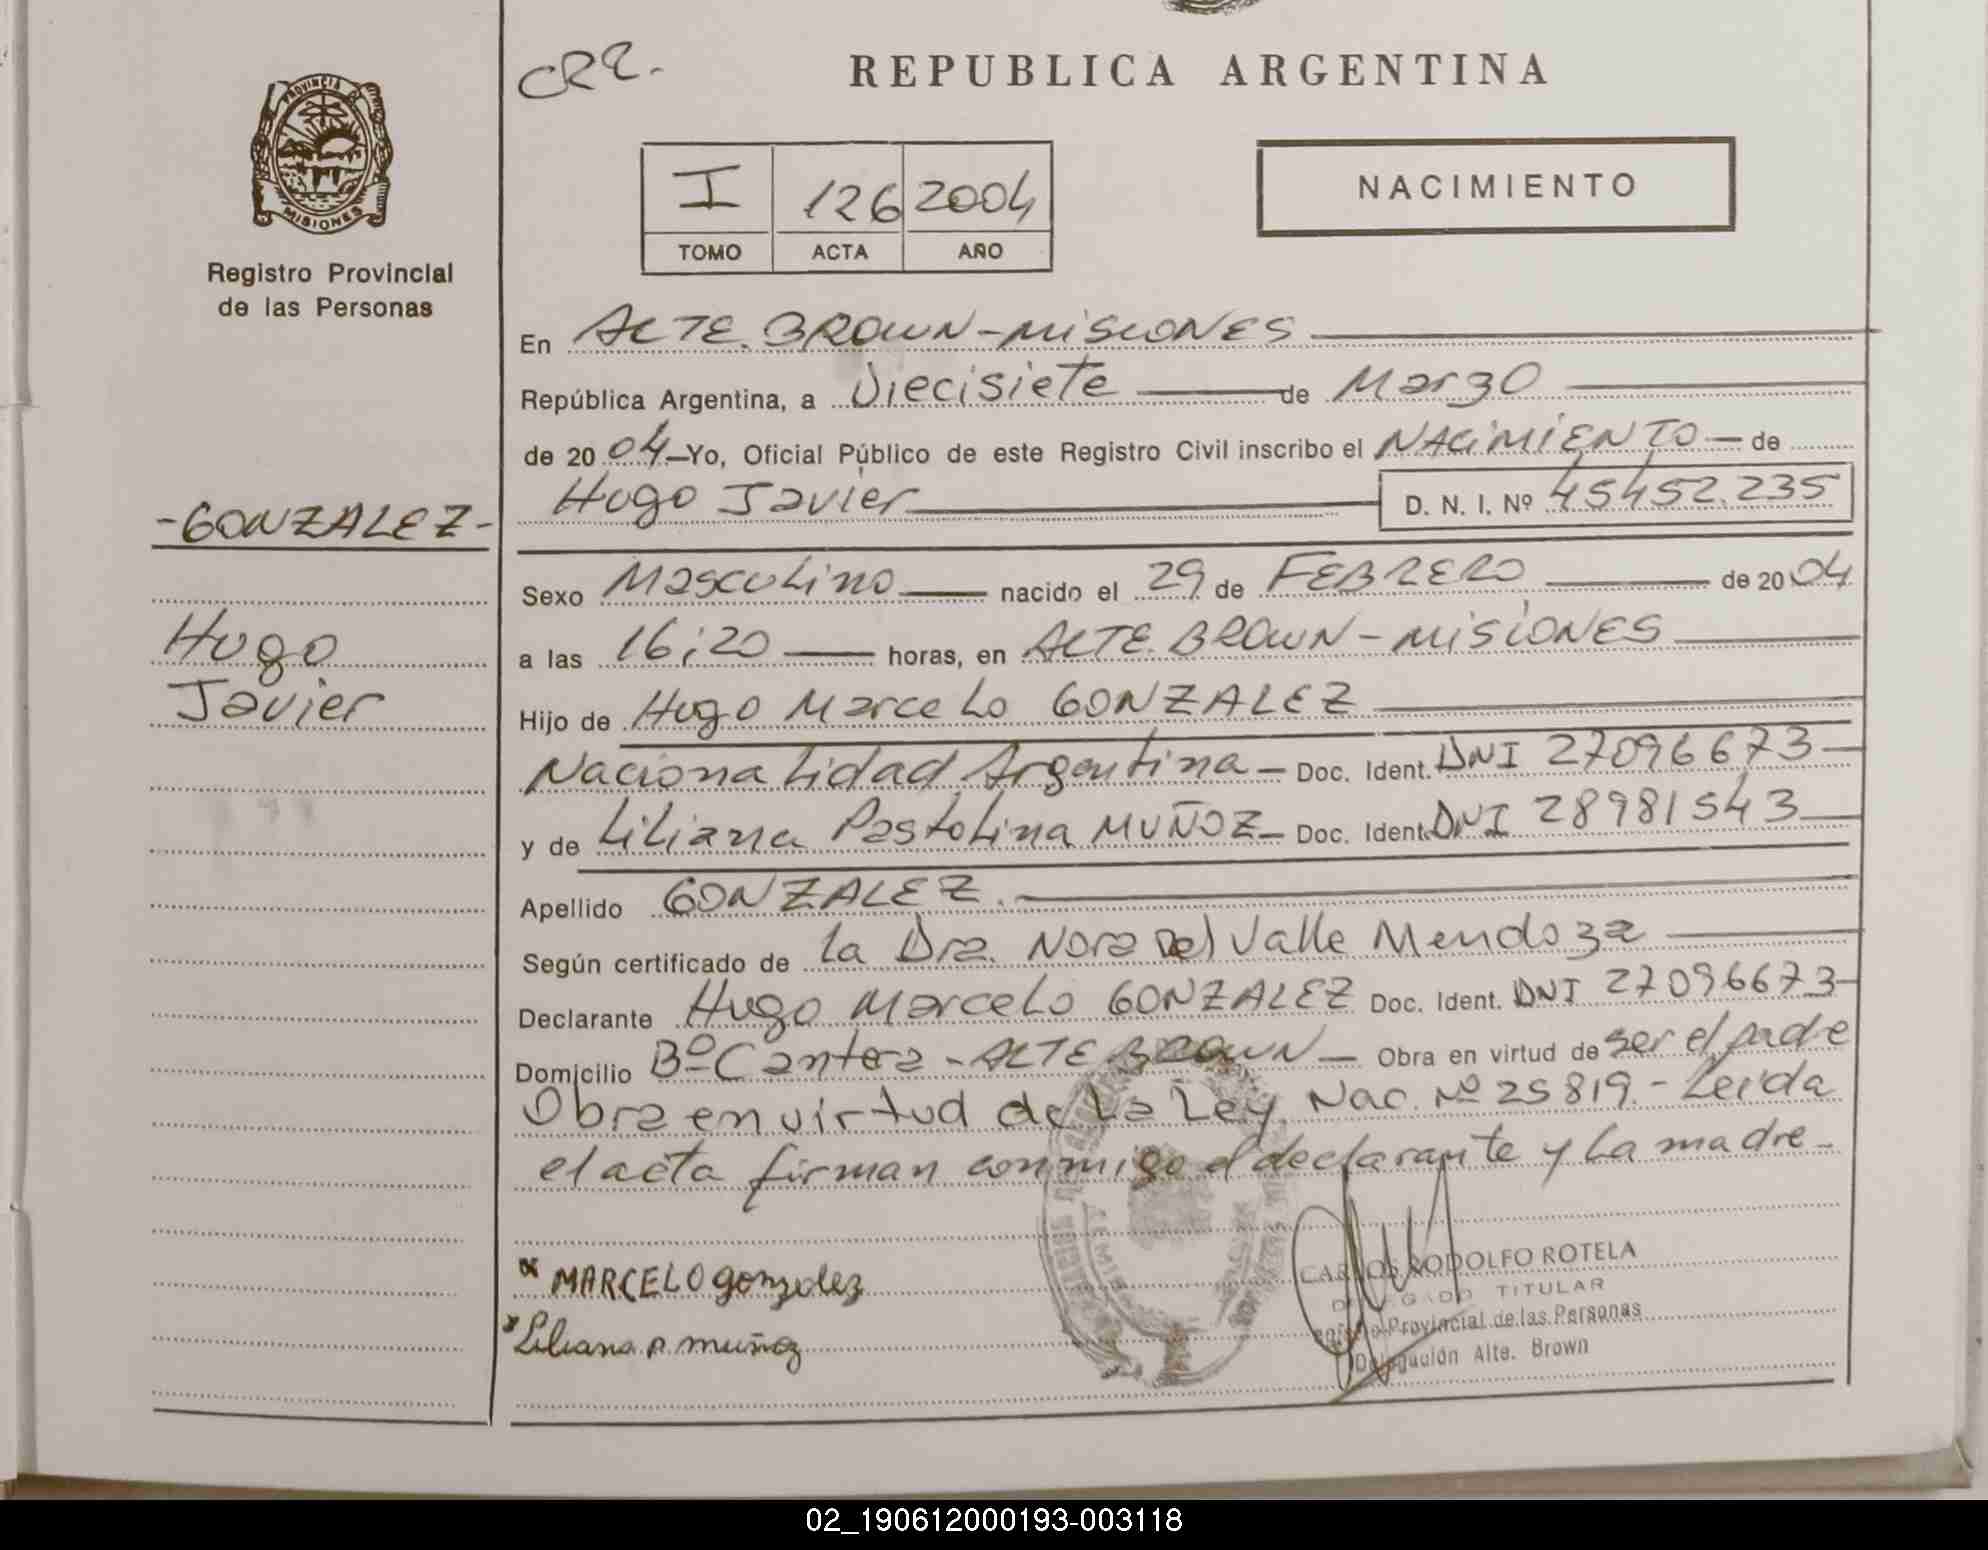 PROVINCIA DE
MISIONES
Registro Provincial
de las Personas
-GONZALEZ-
Hugo
Javier
CRR.
REPUBLICA ARGENTINA
I 126 2004
TOMO ACTA AÑO
NACIMIENTO
En ALTE. BROWN-MISIONES
República Argentina, a Diecisiete de Marzo
de 20 04 Yo, Oficial Público de este Registro Civil inscribo el NACIMIENTO de
Hugo Javier D. N. I. Nº 45452.235
Sexo Masculino nacido el 29 de FEBRERO de 20 04
a las 16:20 horas, en ALTE. BROWN-MISIONES
Hijo de Hugo Marcelo GONZALEZ
Nacionalidad Argentina Doc. Ident. DNI 27096673
y de Liliana Pastolina MUÑOZ Doc. Ident. DNI 28981543
Apellido GONZALEZ.
Según certificado de La Dra. Nora Del Valle Mendoza
Declarante Hugo Marcelo GONZALEZ Doc. Ident. DNI 27096673
Domicilio Bº Cantera - ALTE BROWN Obra en virtud de ser el padre
Obra en virtud de La Ley Nac. Nº 25819.- Leida
el acta firman conmigo el declarante y La madre
MARCELO gonzalez
Liliana P. muñoz
CARLOS RODOLFO ROTELA
DELEGADO TITULAR
Registro Provincial de las Personas
Delegación Alte. Brown
02_190612000193-003118